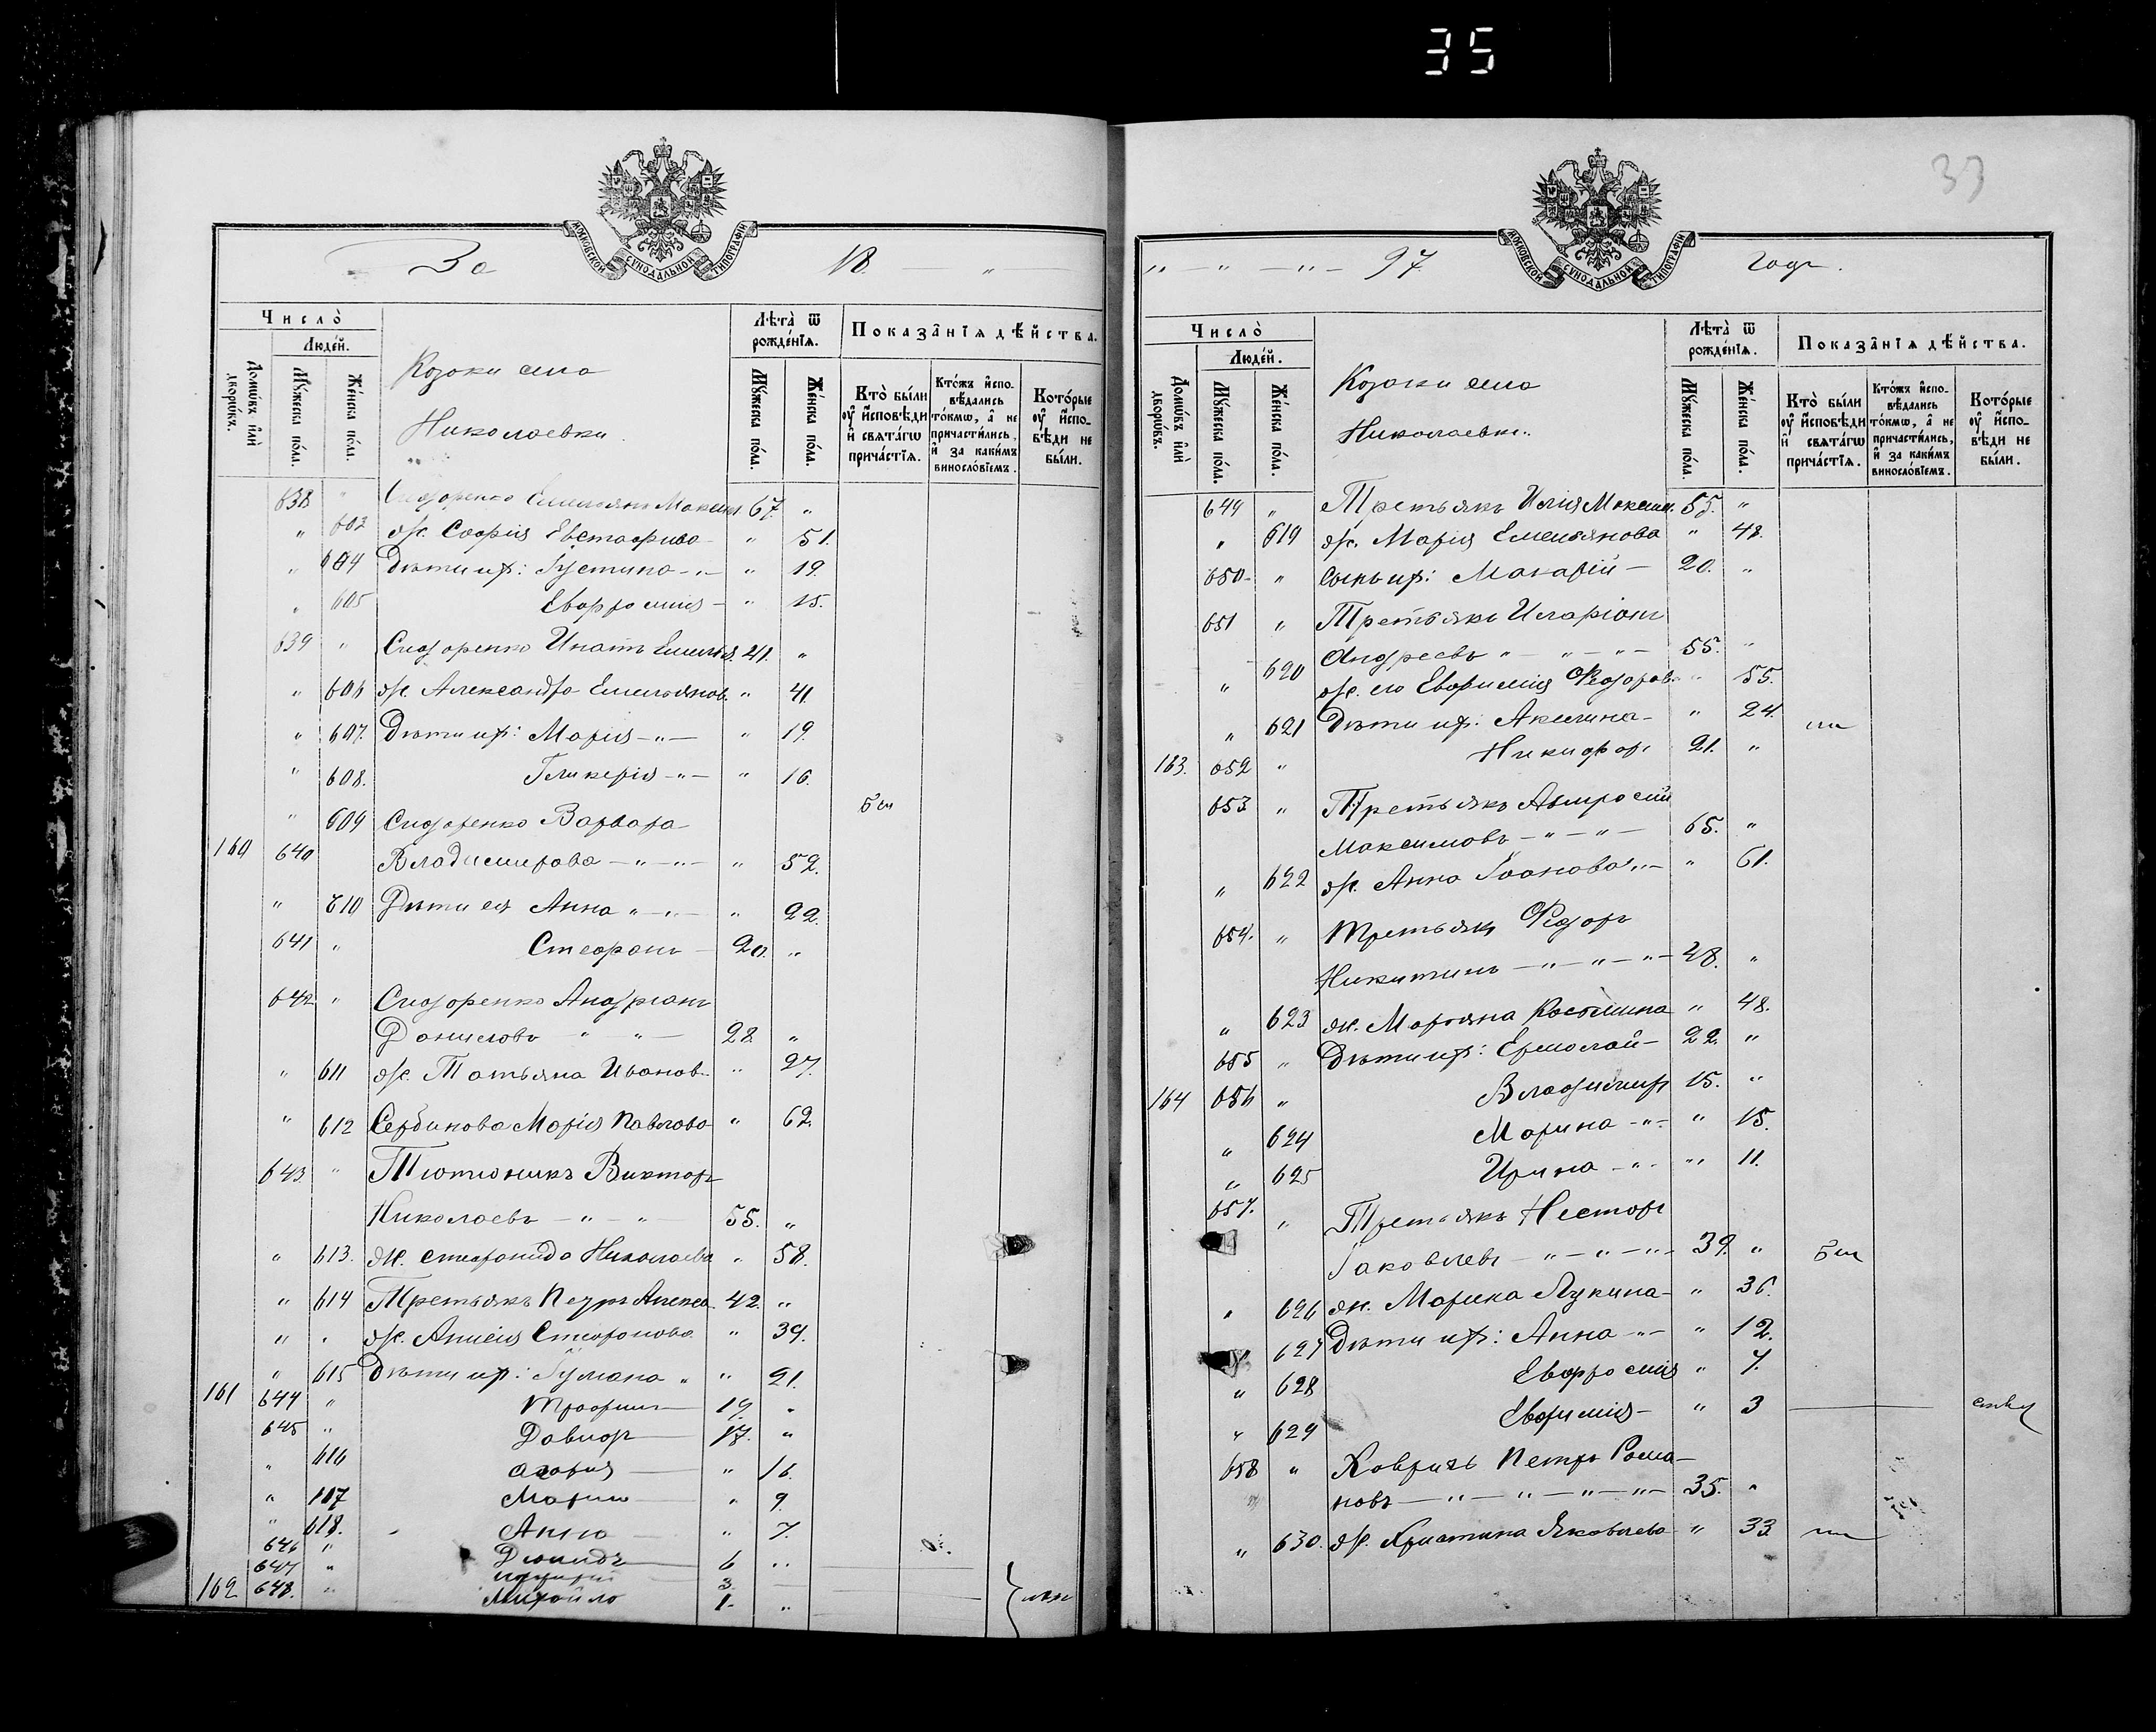 35
33
МОСКОВСКОЙ СУНОДАЛЬНОЙ ТИПОГРАФІИ
За 18 "
Число̀
Людей.
Домѡвъ и҆лѝ дворѡвъ.
Мꙋжеска пола.
Женска пола.
Козаки села
Николаевки.
Лѣта̀ ѿ рожденїѧ.
Мꙋжеска пола.
Женска пола.
Показанїѧ дѣйства.
Кто̀ были ᲂу҆ и҆сповѣди и҆ свѧтагѡ причастїѧ.
Ктожъ и҆сповѣдались токмѡ, а҆ не причастились, и҆ за какимъ винословїемъ.
Которые ᲂу҆ и҆сповѣди не были.
638 " Сидоренко Емельянъ Максим. 67. "
" 603 ж. Софія Евстафиева " 51.
" 604 Дѣти их: Іустина - " - " 19.
" 605 Евфросинія - " 15.
639 " Сидоренко Игнатъ Емельян. 41. "
" 606 ж. Александра Емельянов. " 41.
" 607. Дѣти их: Марія - " - " 19.
" 608. Гликерія - " - " 16.
" 609 Сидоренко Варвара
были
160 640 Владимирова - " - " - " 52.
" 610 Дѣти ея Анна " - " - " 22.
641 " Стефанъ - 20. "
642 " Сидоренко Андріанъ
Даниловъ " - " - 28 "
" 611 ж. Татьяна Иванов. " 27.
" 612 Сердюкова Марія Павлова " 62.
643 " Тютюникъ Викторъ
Николаевъ - " - " - 55. "
" 613. ж. Стефанида Николаева " 58.
" 614 Третьякъ Петръ Алексѣ. 42. "
" " ж. Анисія Стефанова " 39.
" 615 Дѣти их: Іуліана " " 21.
161 644 " Трофимъ 19. "
645 " Давидъ 17. "
" 616 " 16.
" 617 Марія " 9.
" 618. Анна " 7.
646 " Діомидъ 6 "
647 " 3.
162 648. " Михайло 1. "
" - " - " - 97 годъ.
Число̀
Людей.
Домѡвъ и҆лѝ дворѡвъ.
Мꙋжеска пола.
Женска пола.
Козаки села
Николаевки.
Лѣта̀ ѿ рожденїѧ.
Мꙋжеска пола.
Женска пола.
Показанїѧ дѣйства.
Кто̀ были ᲂу҆ и҆сповѣди и҆ свѧтагѡ причастїѧ.
Ктожъ и҆сповѣдались токмѡ, а҆ не причастились, и҆ за какимъ винословїемъ.
Которые ᲂу҆ и҆сповѣди не были.
МОСКОВСКОЙ СУНОДАЛЬНОЙ ТИПОГРАФІИ
649 " Третьякъ Илія Максим. 55. "
" 619 ж. Марія Емельянова " 48.
650 " сынъ их: Макарій - 20. "
651 " Третьякъ Иларіонъ
Андреевъ " - " - " - 55. "
" 620 ж. его Евфимія Феодоров. " 55.
" 621 Дѣти их: Акилина - " 24.
163. 652 " Никифоръ 21. "
653 " Третьякъ Амвросій
Максимовъ - " - " - 65. "
" 622 ж. Анна Іоанова - " - " 61.
654. " Третьякъ Феодоръ
Никитинъ - " - " - " - 48. "
" 623 ж. Мартина Космина " 48.
655 " Дѣти их: Ермолай - 22. "
164 656 " Владимиръ 15. "
" 624 Марина - " - " 15.
" 625 Ирина - " - " 11.
657. " Третьякъ Несторъ
Іаковлевъ - " - " - " - 39. "
" 626 ж. Марина Лукина - " 36.
" 627 Дѣти их: Анна - " - " 12.
" 628 Евфросинія " 7.
" 629 Евфимія - " 3
658 " Коврихъ Петръ Рома-
новъ - " - " - " - " - 35. "
" 630. ж. Христина Яковлева " 33